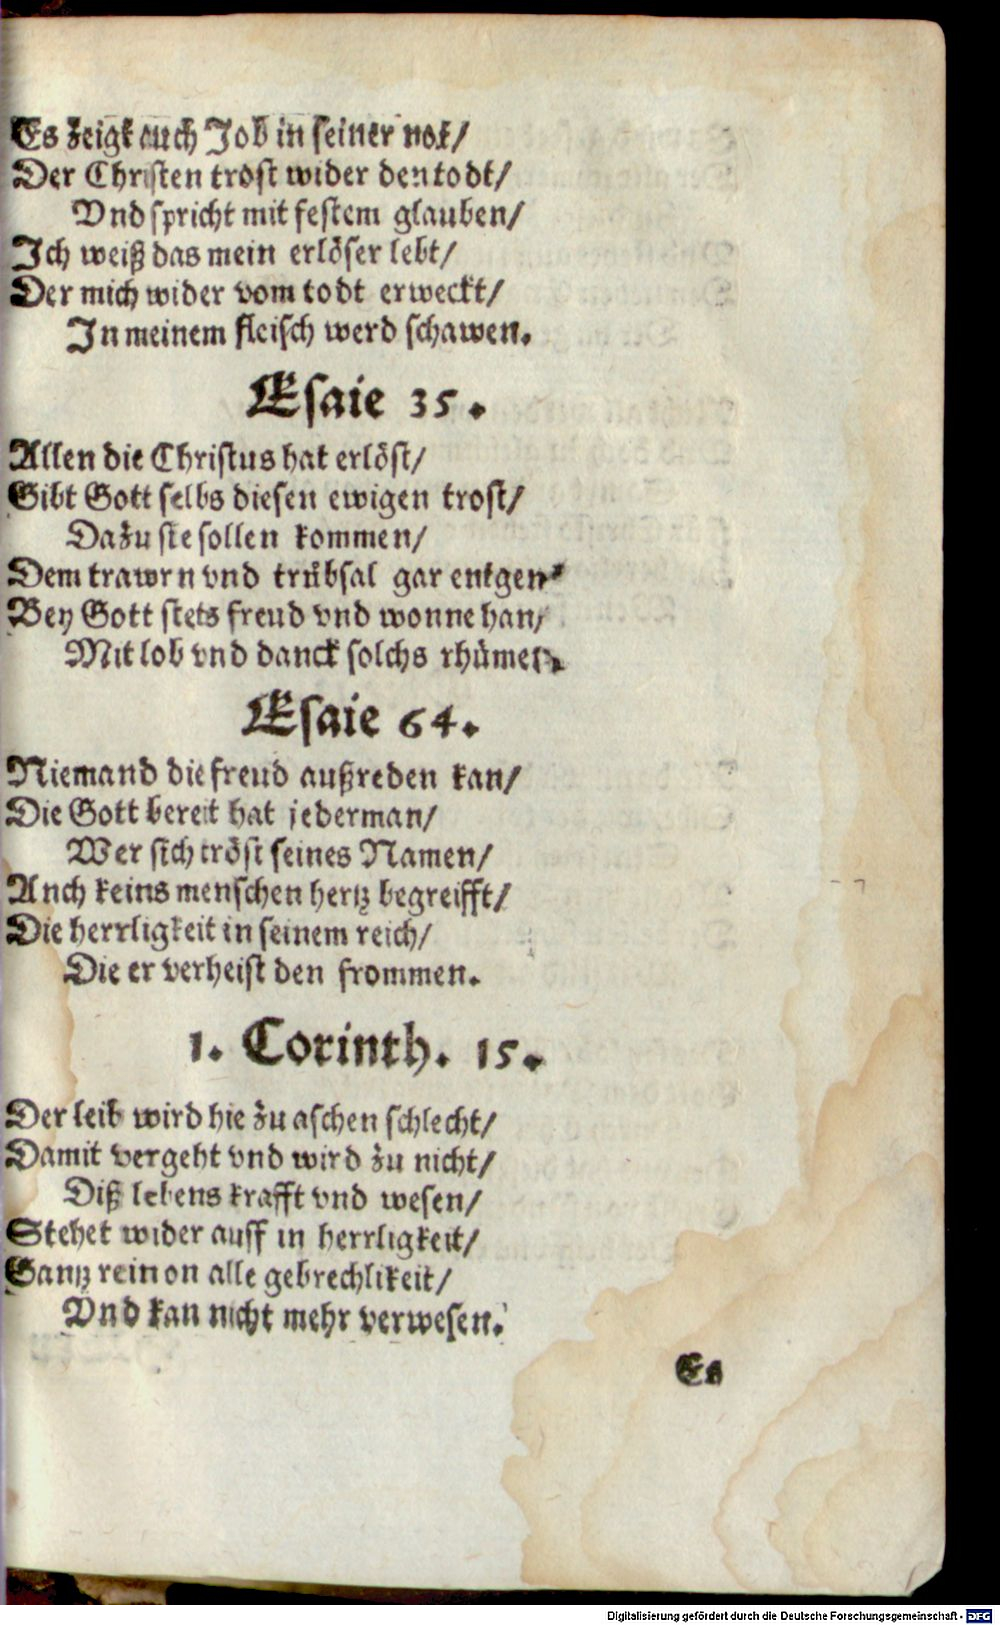 Es zeigt auch Job in seiner not/
Der Christen trost wider den todt/
Vnd spricht mit festem glauben/
Ich weiß das mein erlöser lebt/
Der mich wider vom todt erweckt/
In meinem fleisch werd schawen.
Esaie 35.
Allen die Christus hat erlöst/
Gibt Gott selbs diesen ewigen trost/
Dazu sie sollen kommen/
Dem trawrn vnd trübsal gar entgen
Bey Gott stets freud vnd wonne han/
Mit lob vnd danck solchs rhümen
Esaie 64.
Niemand die freud außreden kan/
Die Gott bereit hat jederman/
Wer sich tröst seines Namen/
Anch keins menschen hertz begreifft/
Die herrligkeit in seinem reich/
Die er verheist den frommen.
1. Corinth. 15.
Der leib wird hie zu aschen schlecht/
Damit vergeht vnd wird zu nicht/
Diß lebens krafft vnd wesen/
Stehet wider auff in herrligkeit/
Gantz rein on alle gebrechlikeit/
Vnd kan nicht mehr verwesen.
Es
Digitalisierung gefördert durch die Deutsche Forschungsgemeinschaft - DFG